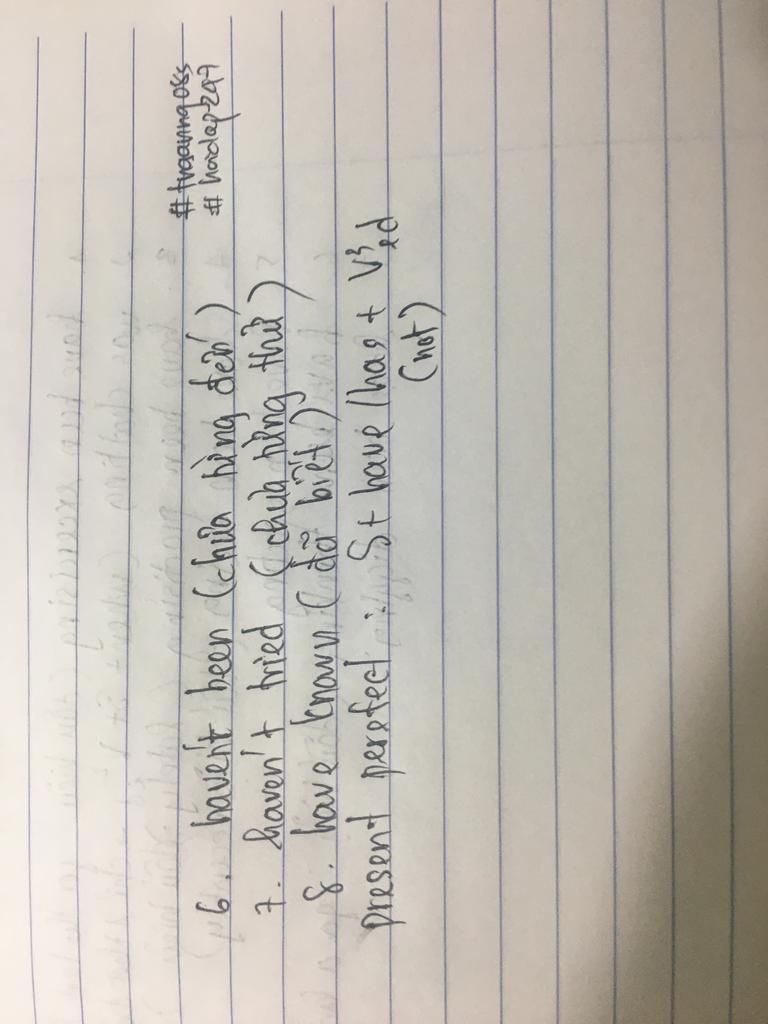 #traavng088
#hoidap247
6. haven't been (chưa từng đến)
7. haven't tried (chưa từng thử)
8. have known (đã biết)
present perefect : S+ have/has + V3/ed
(not)